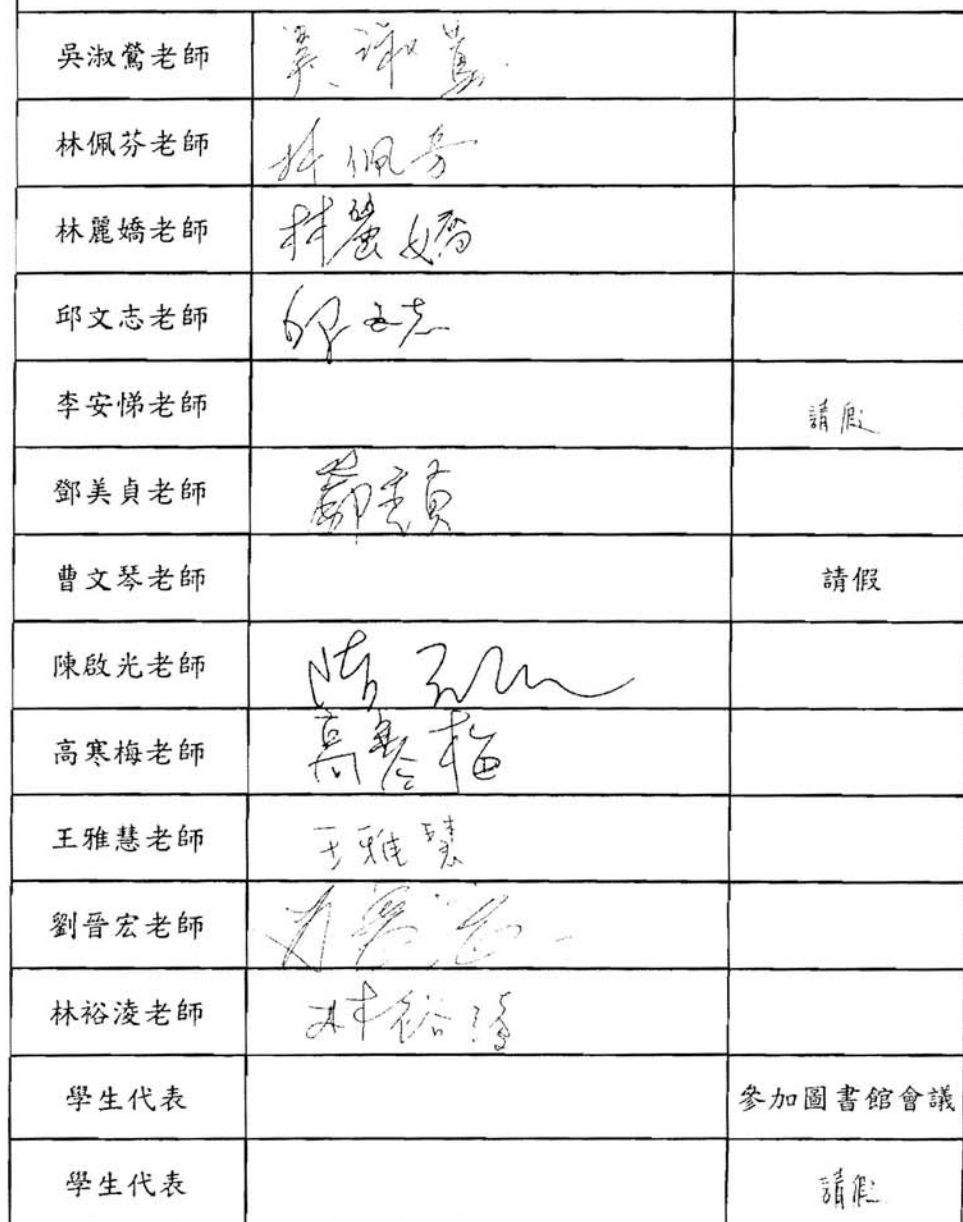 吳淑鶯老師 吳淑鶯
林佩芬老師 林佩芬
林麗嬌老師 林麗嬌
邱文志老師 邱文志
李安悌老師 請假
鄧美貞老師 鄧美貞
曹文琴老師 請假
陳啟光老師 陳
高寒梅老師 高寒梅
王雅慧老師 王雅慧
劉晉宏老師
林裕淩老師 林裕淩
學生代表 參加圖書館會議
學生代表 請假